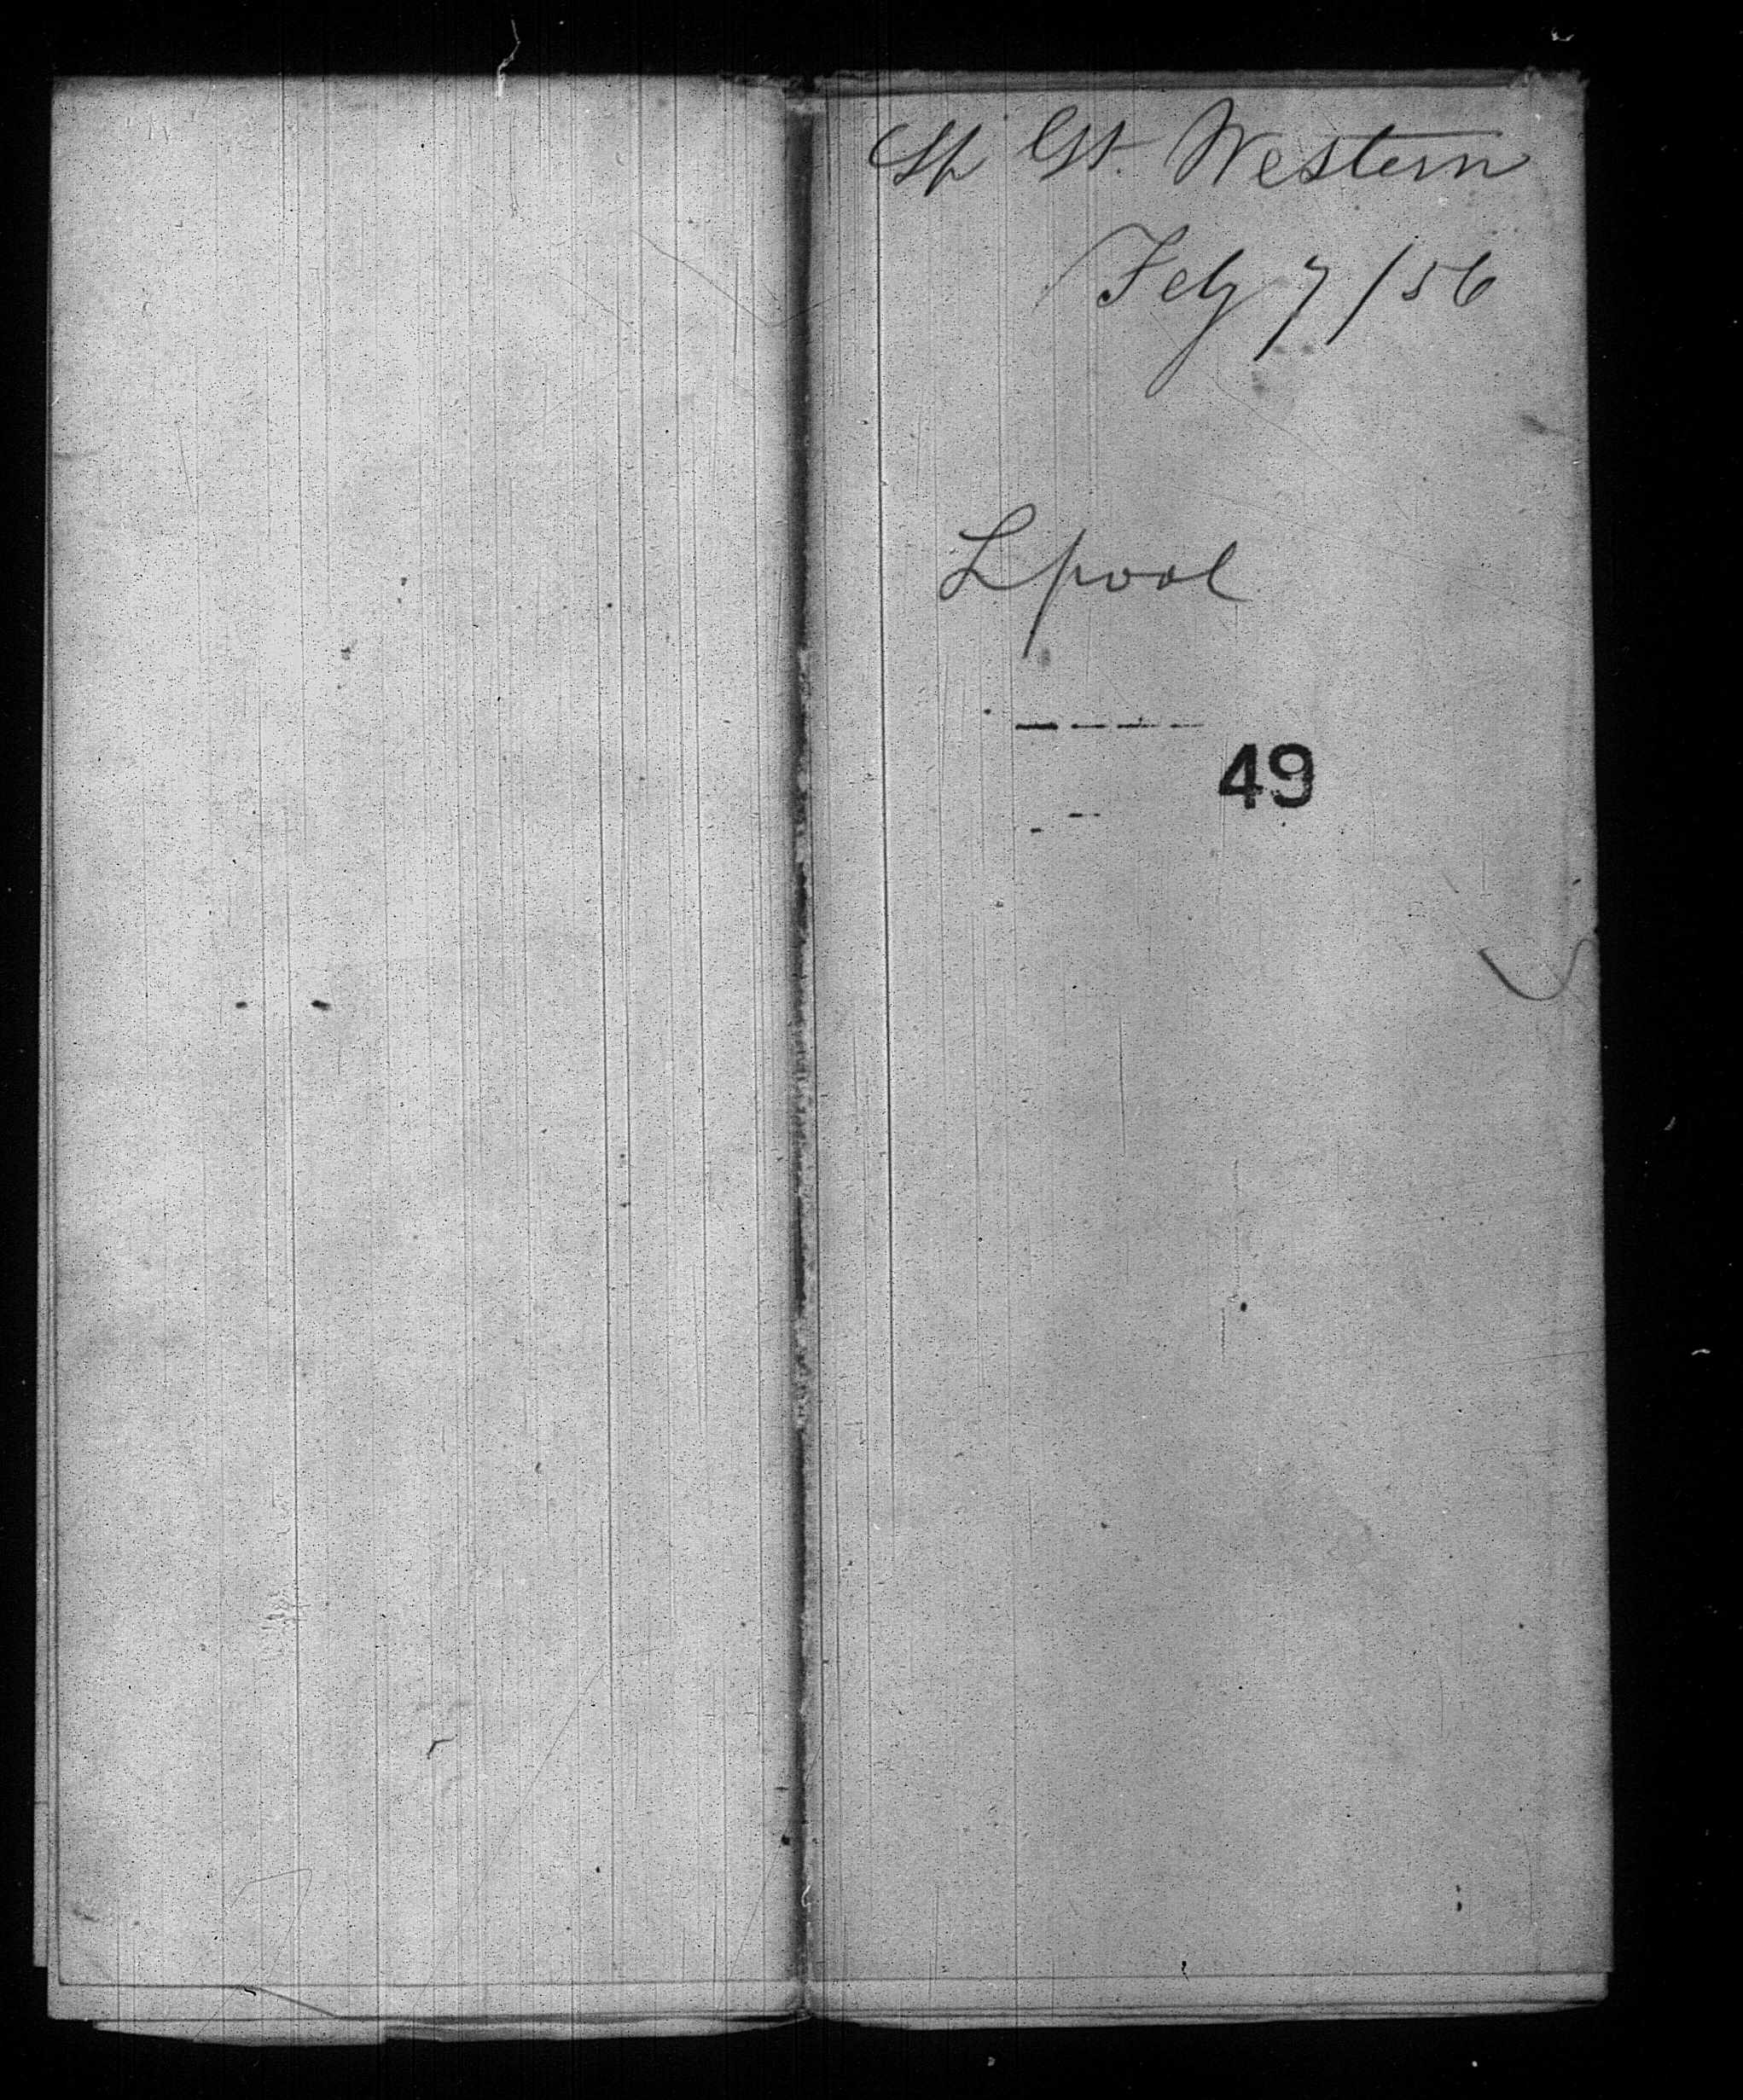 Sh Gt. Western
Feby 7/56
Lpool
49